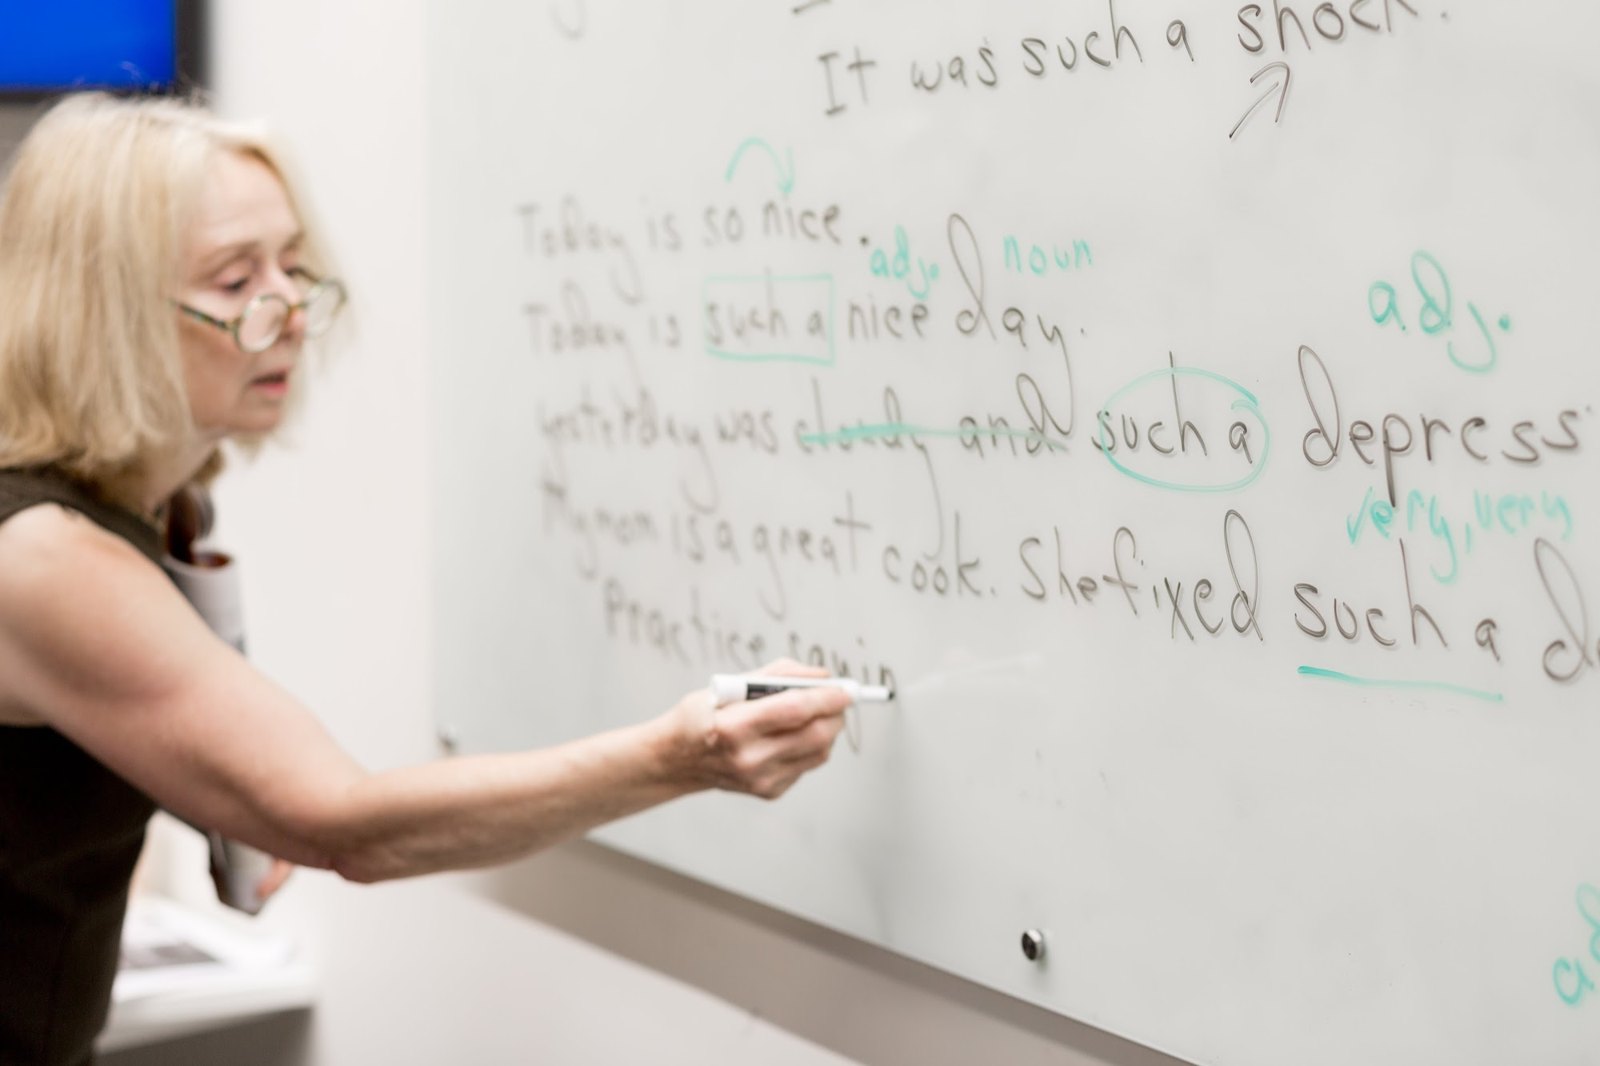 It was such a shock.
Today is so nice.
adj. noun
Today is such a nice day.
adj.
yesterday was cloudy and such a depress
very, very
My mom is a great cook. She fixed such a de
Practice sayin
ad